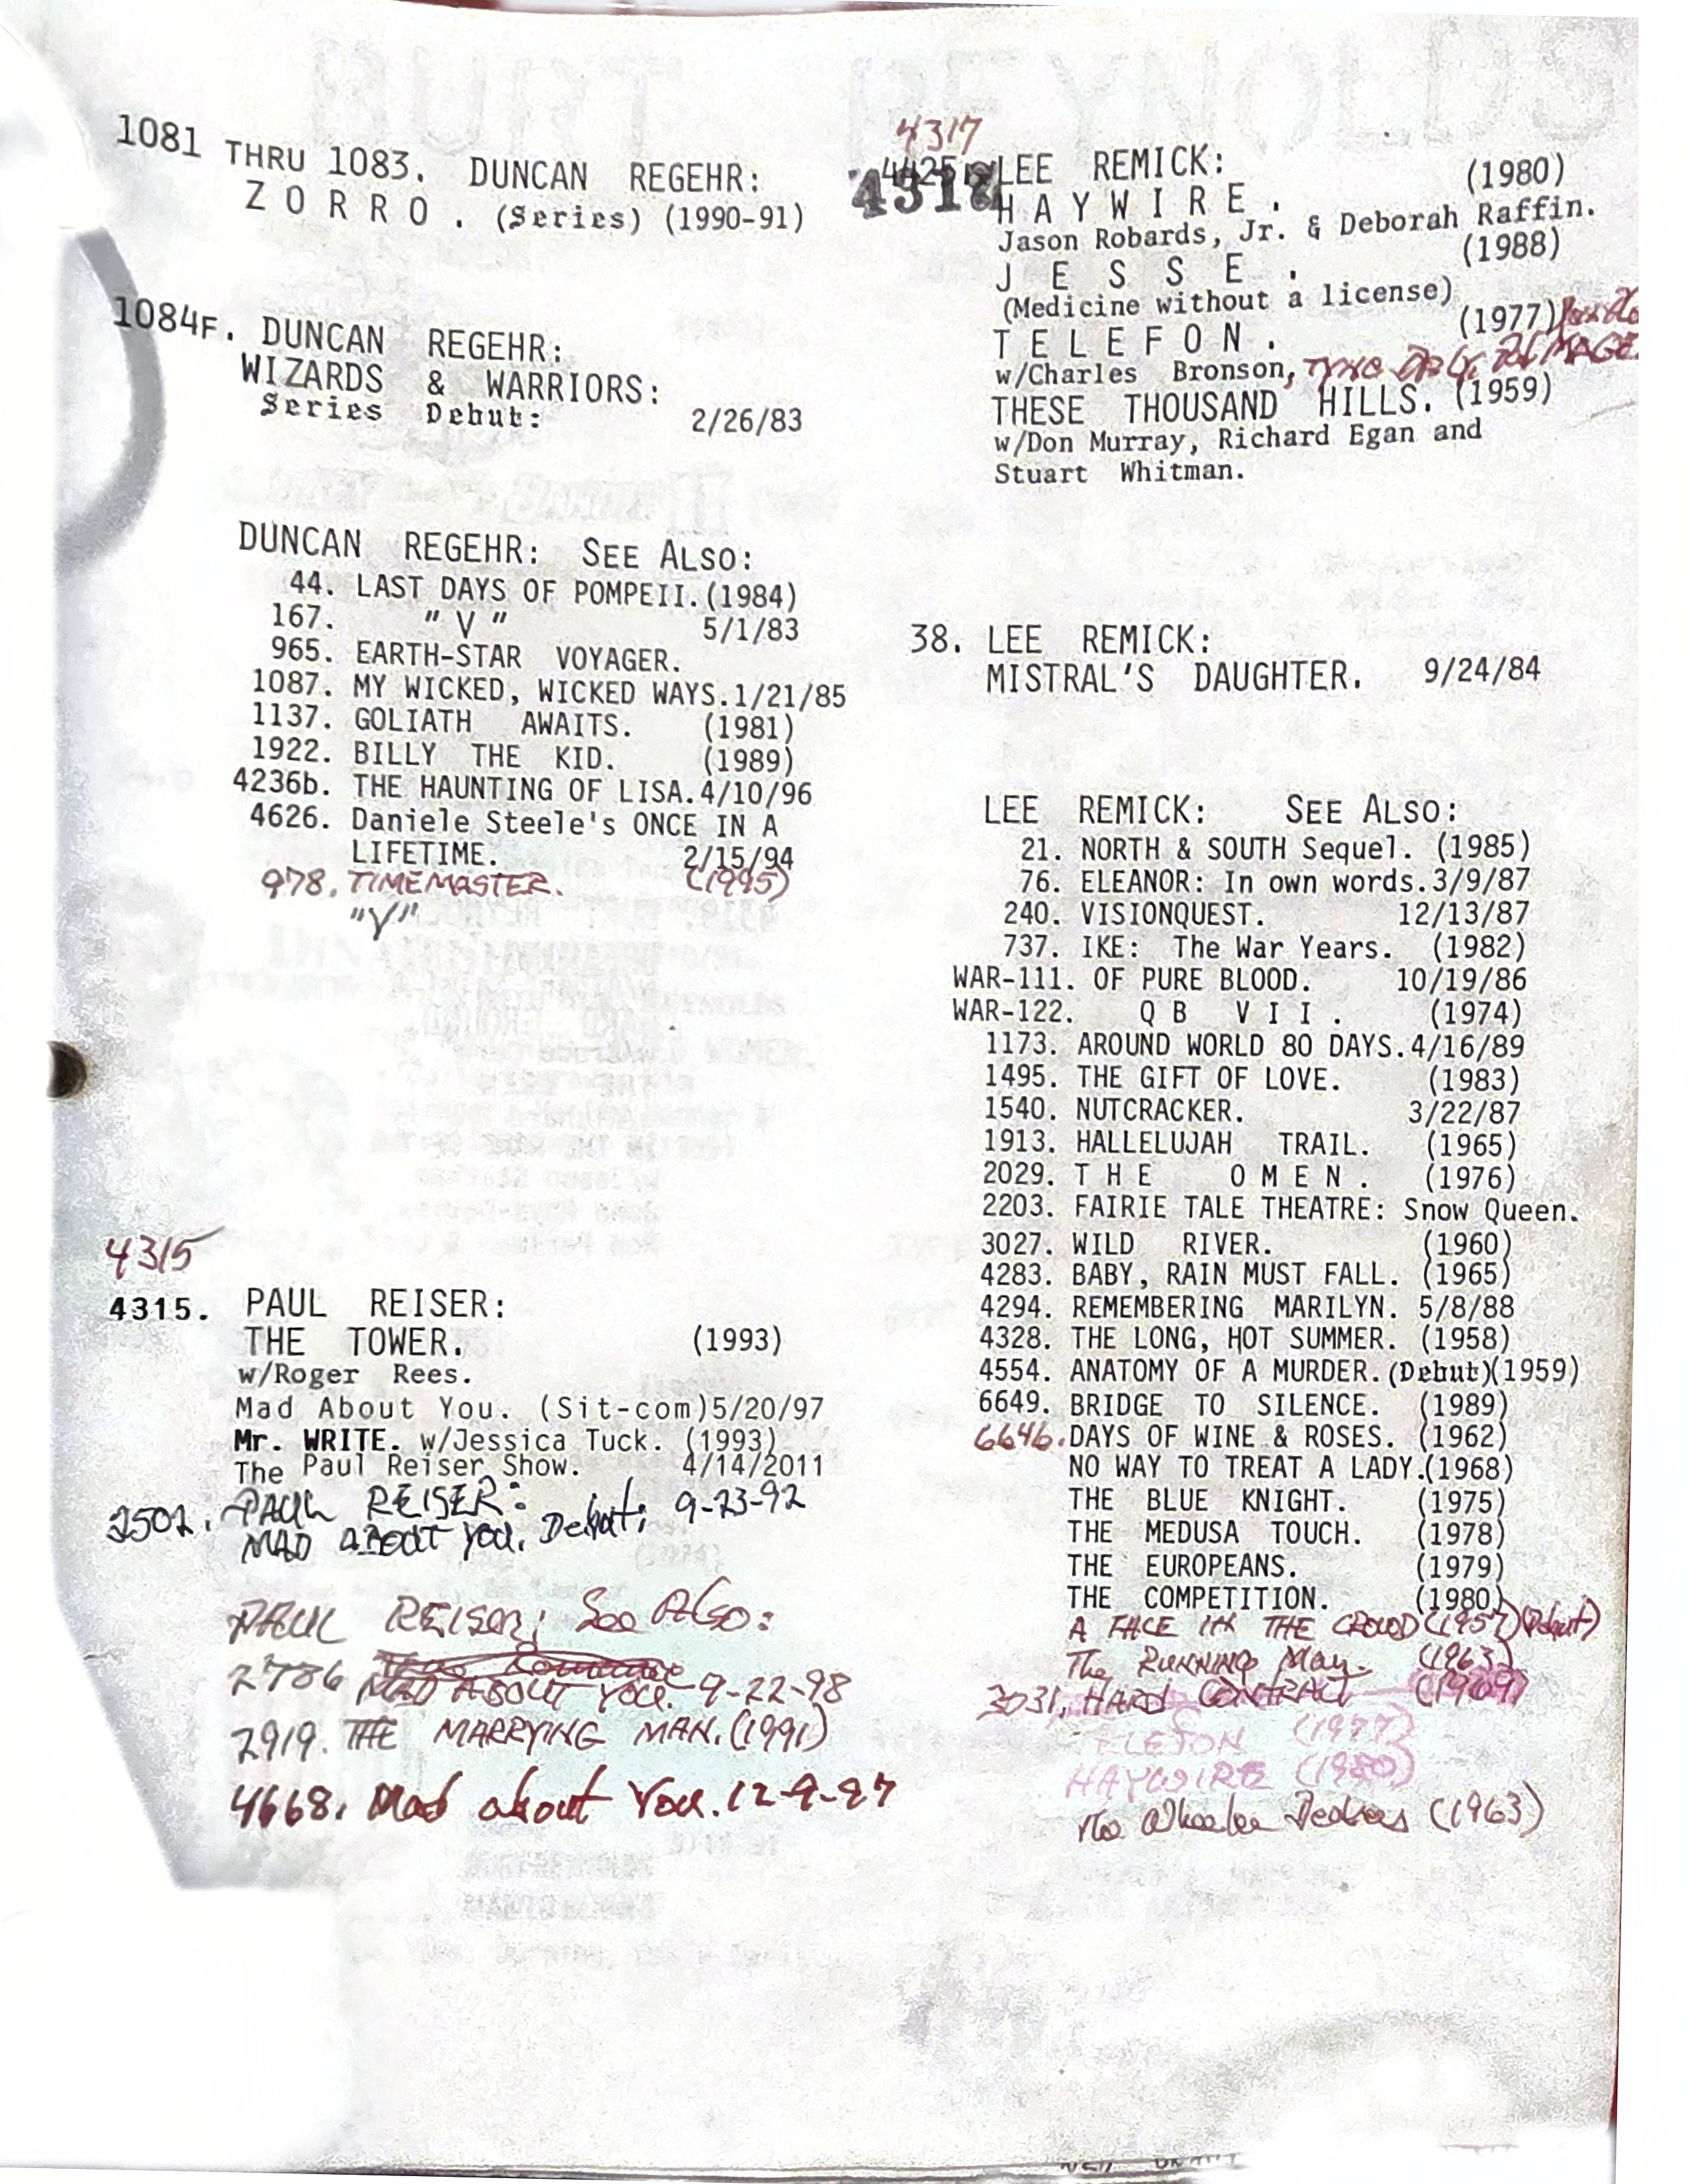 1081 THRU 1083. DUNCAN REGEHR:
Z O R R O . (Series) (1990-91)
1084F. DUNCAN REGEHR:
WIZARDS & WARRIORS:
Series Debut: 2/26/83
DUNCAN REGEHR: SEE ALSO:
44. LAST DAYS OF POMPEII.(1984)
167. "V" 5/1/83
965. EARTH-STAR VOYAGER.
1087. MY WICKED, WICKED WAYS.1/21/85
1137. GOLIATH AWAITS. (1981)
1922. BILLY THE KID. (1989)
4236b. THE HAUNTING OF LISA.4/10/96
4626. Daniele Steele's ONCE IN A
LIFETIME. 2/15/94
978. TIMEMASTER. (1995)
"V"
4315
4315. PAUL REISER:
THE TOWER. (1993)
w/Roger Rees.
Mad About You. (Sit-com)5/20/97
Mr. WRITE. w/Jessica Tuck. (1993)
The Paul Reiser Show. 4/14/2011
2502. PAUL REISER:
MAD ABOUT YOU. Debut: 9-23-92
PAUL REISER: See Also:
2786 MAD ABOUT YOU. 9-22-98
2919. THE MARRYING MAN.(1991)
4668. Mad about You.12-9-97
4317
LEE REMICK: (1980)
H A Y W I R E .
Jason Robards, Jr. & Deborah Raffin.
J E S S E . (1988)
(Medicine without a license)
T E L E F O N . (1977)
w/Charles Bronson, TYNE DALY,
THESE THOUSAND HILLS. (1959)
w/Don Murray, Richard Egan and
Stuart Whitman.
38. LEE REMICK:
MISTRAL'S DAUGHTER. 9/24/84
LEE REMICK: SEE ALSO:
21. NORTH & SOUTH Sequel. (1985)
76. ELEANOR: In own words.3/9/87
240. VISIONQUEST. 12/13/87
737. IKE: The War Years. (1982)
WAR-111. OF PURE BLOOD. 10/19/86
WAR-122. Q B V I I . (1974)
1173. AROUND WORLD 80 DAYS.4/16/89
1495. THE GIFT OF LOVE. (1983)
1540. NUTCRACKER. 3/22/87
1913. HALLELUJAH TRAIL. (1965)
2029. T H E O M E N . (1976)
2203. FAIRIE TALE THEATRE: Snow Queen.
3027. WILD RIVER. (1960)
4283. BABY, RAIN MUST FALL. (1965)
4294. REMEMBERING MARILYN. 5/8/88
4328. THE LONG, HOT SUMMER. (1958)
4554. ANATOMY OF A MURDER.(Debut)(1959)
6649. BRIDGE TO SILENCE. (1989)
6646. DAYS OF WINE & ROSES. (1962)
NO WAY TO TREAT A LADY.(1968)
THE BLUE KNIGHT. (1975)
THE MEDUSA TOUCH. (1978)
THE EUROPEANS. (1979)
THE COMPETITION. (1980)
A FACE IN THE CROWD (1957)(Debut)
The RUNNING Man. (1963)
3031. HARD CONTRACT (1969)
TELEFON (1977)
HAYWIRE (1980)
The Wheeler Dealers (1963)